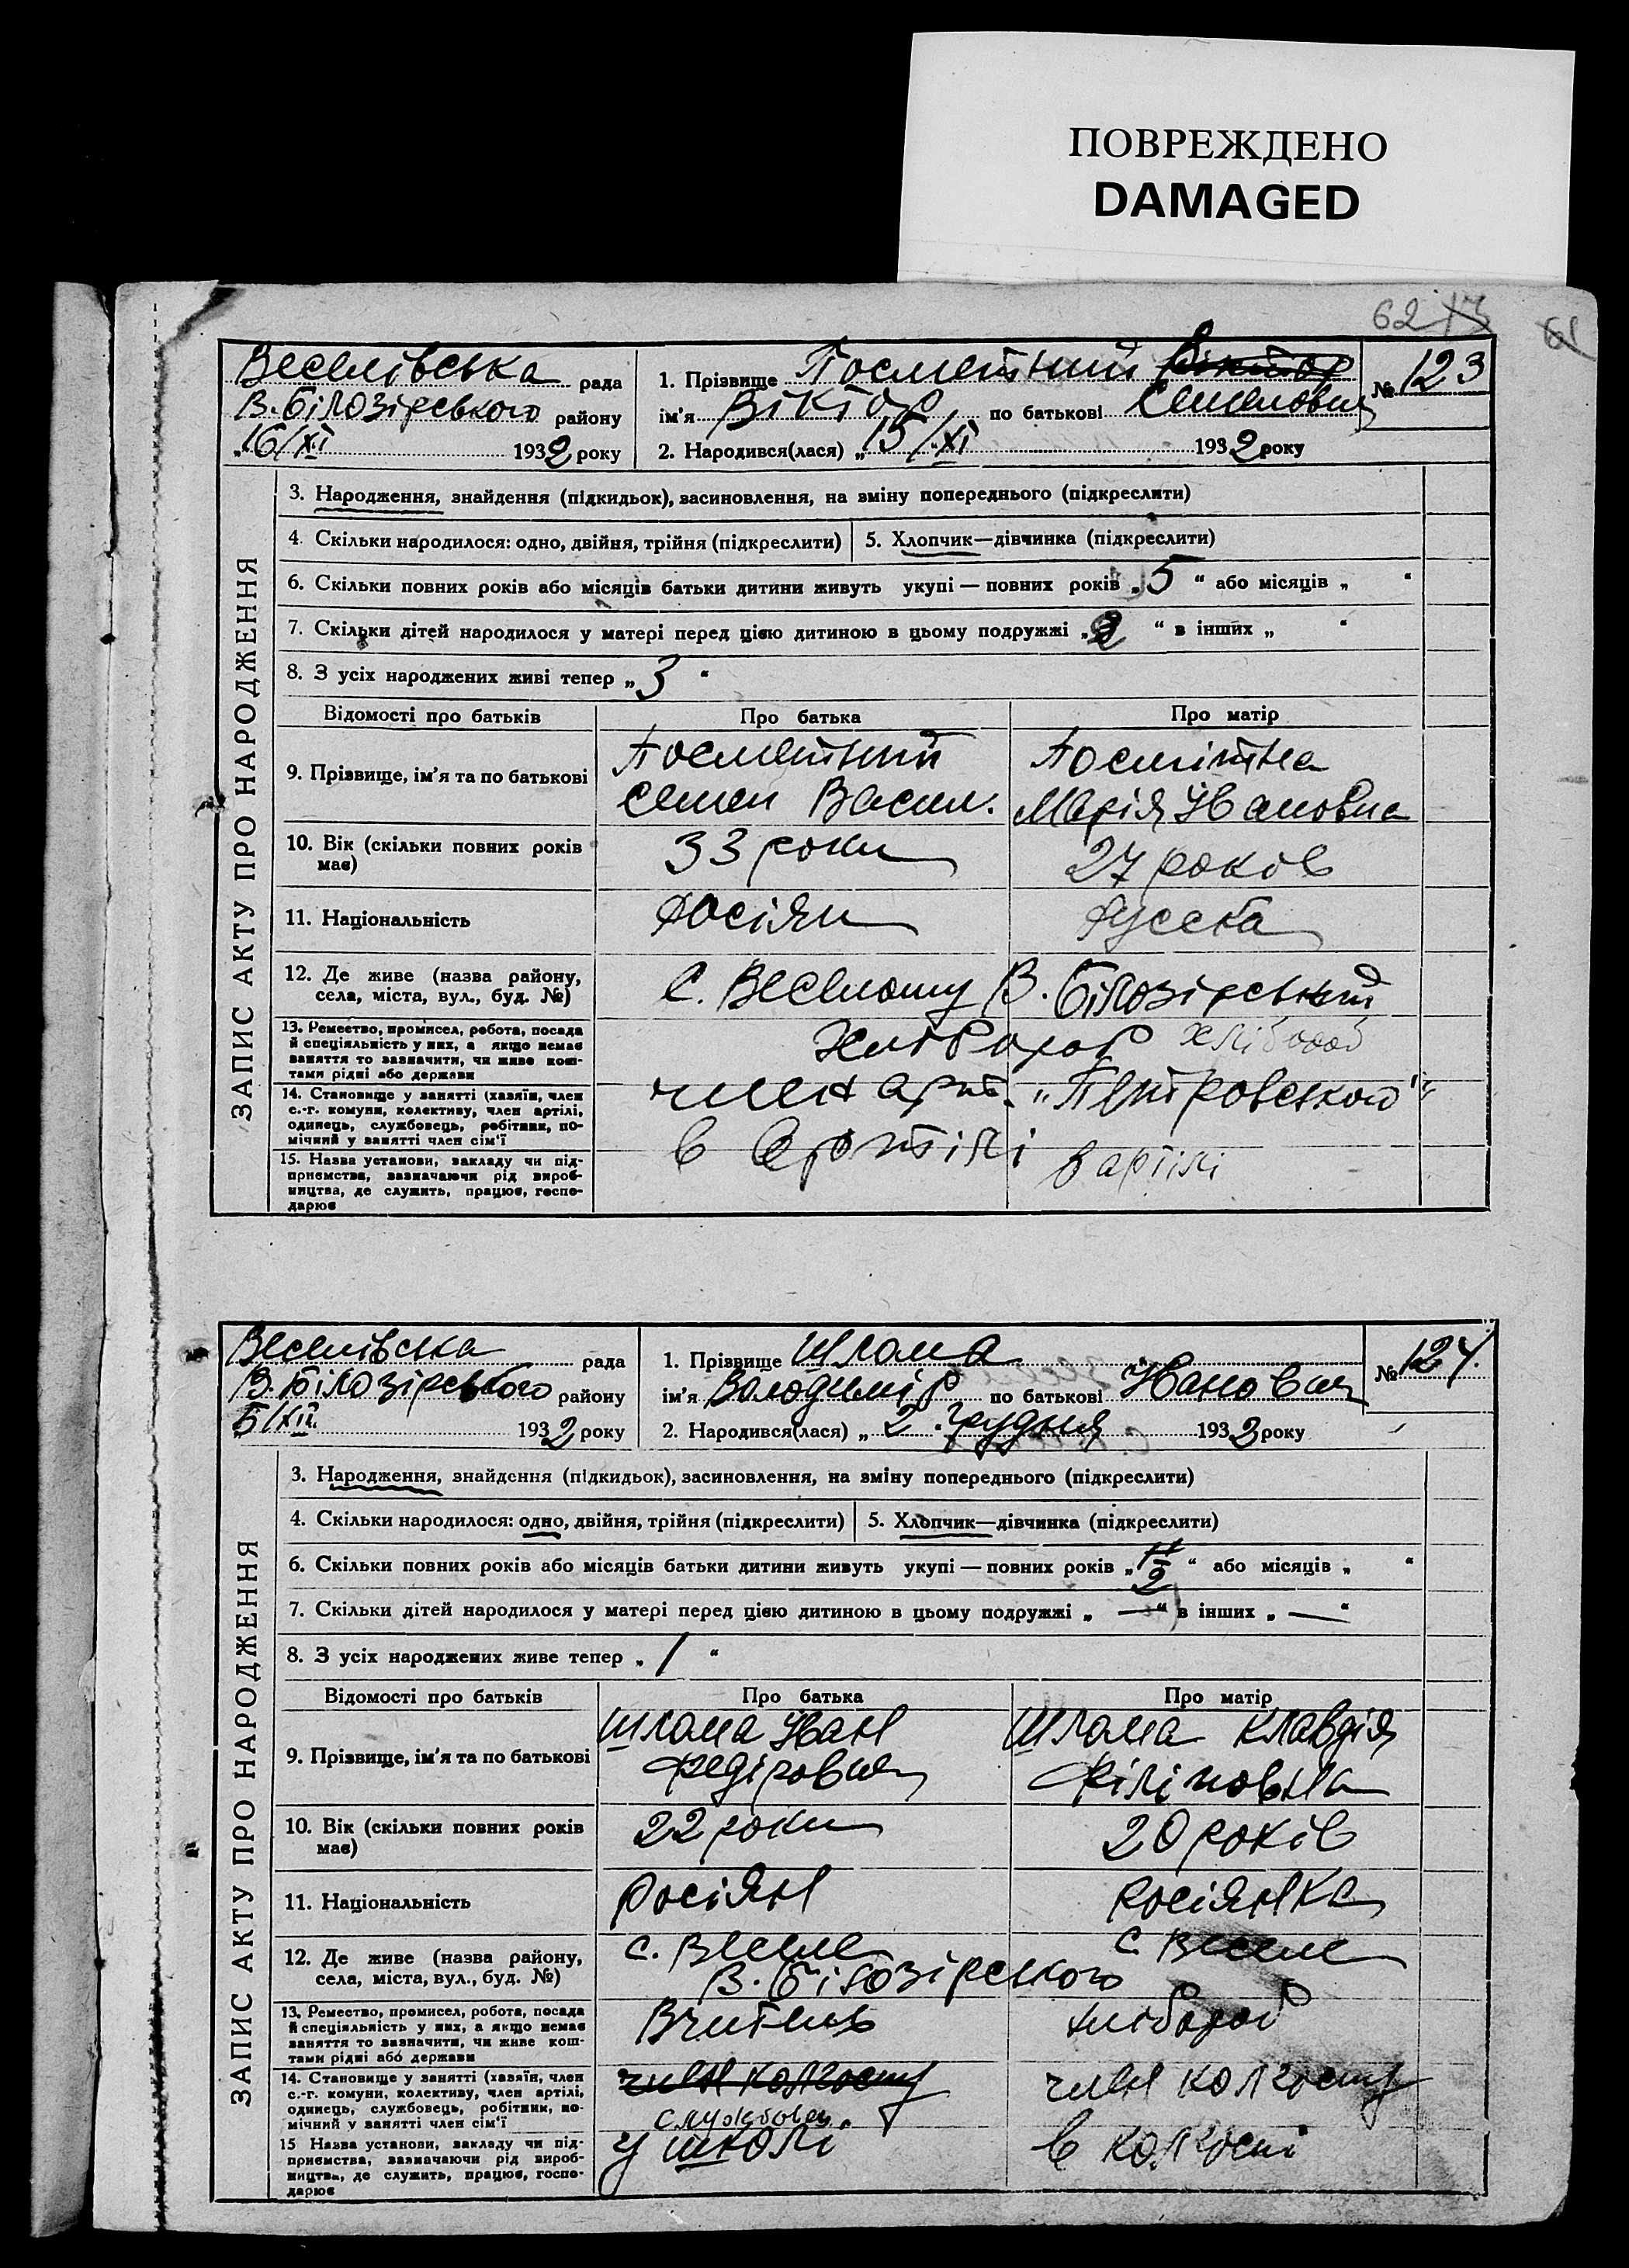 ПОВРЕЖДЕНО
DAMAGED
62
61
Веселівська рада
В. Білозірського району
„16/XI 1932 року
1. Прізвище Посметний Віктор
№ 123
ім'я Віктор по батькові Семенович
2. Народився(лася) „15/XI 1932 року
ЗАПИС АКТУ ПРО НАРОДЖЕННЯ
3. Народження, знайдення (підкидьок), засиновлення, на зміну попереднього (підкреслити)
4. Скільки народилося: одно, двійня, трійня (підкреслити) 5. Хлопчик—дівчинка (підкреслити)
6. Скільки повних років або місяців батьки дитини живуть укупі — повних років „5“ або місяців „ “
7. Скільки дітей народилося у матері перед цією дитиною в цьому подружжі „2“ в інших „ “
8. З усіх народжених живі тепер „3“
Відомості про батьків Про батька Про матір
9. Прізвище, ім'я та по батькові
Посметний
Семен Васил.
Посмітна
Марія Івановна
10. Вік (скільки повних років
має)
33 роки
27 років
11. Національність
росіян
русска
12. Де живе (назва району,
села, міста, вул., буд. №)
С. Веселому В. Білозірський
13. Ремество, промисел, робота, посада
й спеціяльність у них, а якщо немає
заняття то зазначити, чи живе кош-
тами рідні або держави
Хлібороб хлібороб
14. Становище у занятті (хазяїн, член
с.-г. комуни, колективу, член артілі,
одинець, службовець, робітник, по-
мічний у занятті член сім'ї
член арт. „Петровського“
15. Назва установи, закладу чи під-
приємства, зазначаючи рід вироб-
ництва, де служить, працює, госпо-
дарює
в артілі
в артілі
Веселівська рада
В. Білозірського району
5/XII 1932 року
1. Прізвище Шлома
№ 124.
ім'я Володимір по батькові Іванович
2. Народився(лася) „2 грудня 1932 року
ЗАПИС АКТУ ПРО НАРОДЖЕННЯ
3. Народження, знайдення (підкидьок), засиновлення, на зміну попереднього (підкреслити)
4. Скільки народилося: одно, двійня, трійня (підкреслити) 5. Хлопчик—дівчинка (підкреслити)
6. Скільки повних років або місяців батьки дитини живуть укупі — повних років „ “ або місяців „ “
7. Скільки дітей народилося у матері перед цією дитиною в цьому подружжі „—“ в інших „—“
8. З усіх народжених живе тепер „1“
Відомості про батьків Про батька Про матір
9. Прізвище, ім'я та по батькові
Шлома Іван
Федірович
Шлома Клавдія
Філіповна
10. Вік (скільки повних років
має)
22 роки
20 років
11. Національність
росіян
росіянка
12. Де живе (назва району,
села, міста, вул., буд. №)
с. Веселе с. Веселе
В. Білозірського
13. Ремество, промисел, робота, посада
й спеціяльність у них, а якщо немає
заняття то зазначити, чи живе кош-
тами рідні або держави
Вчитель
хлібороб
14. Становище у занятті (хазяїн, член
с.-г. комуни, колективу, член артілі,
одинець, службовець, робітник, по-
мічний у занятті член сім'ї
член колгоспу
службовец.
член колгоспу
15 Назва установи, закладу чи під-
приємства, зазначаючи рід вироб-
ництва, де служить, працює, госпо-
дарює
у школі
в колгоспі